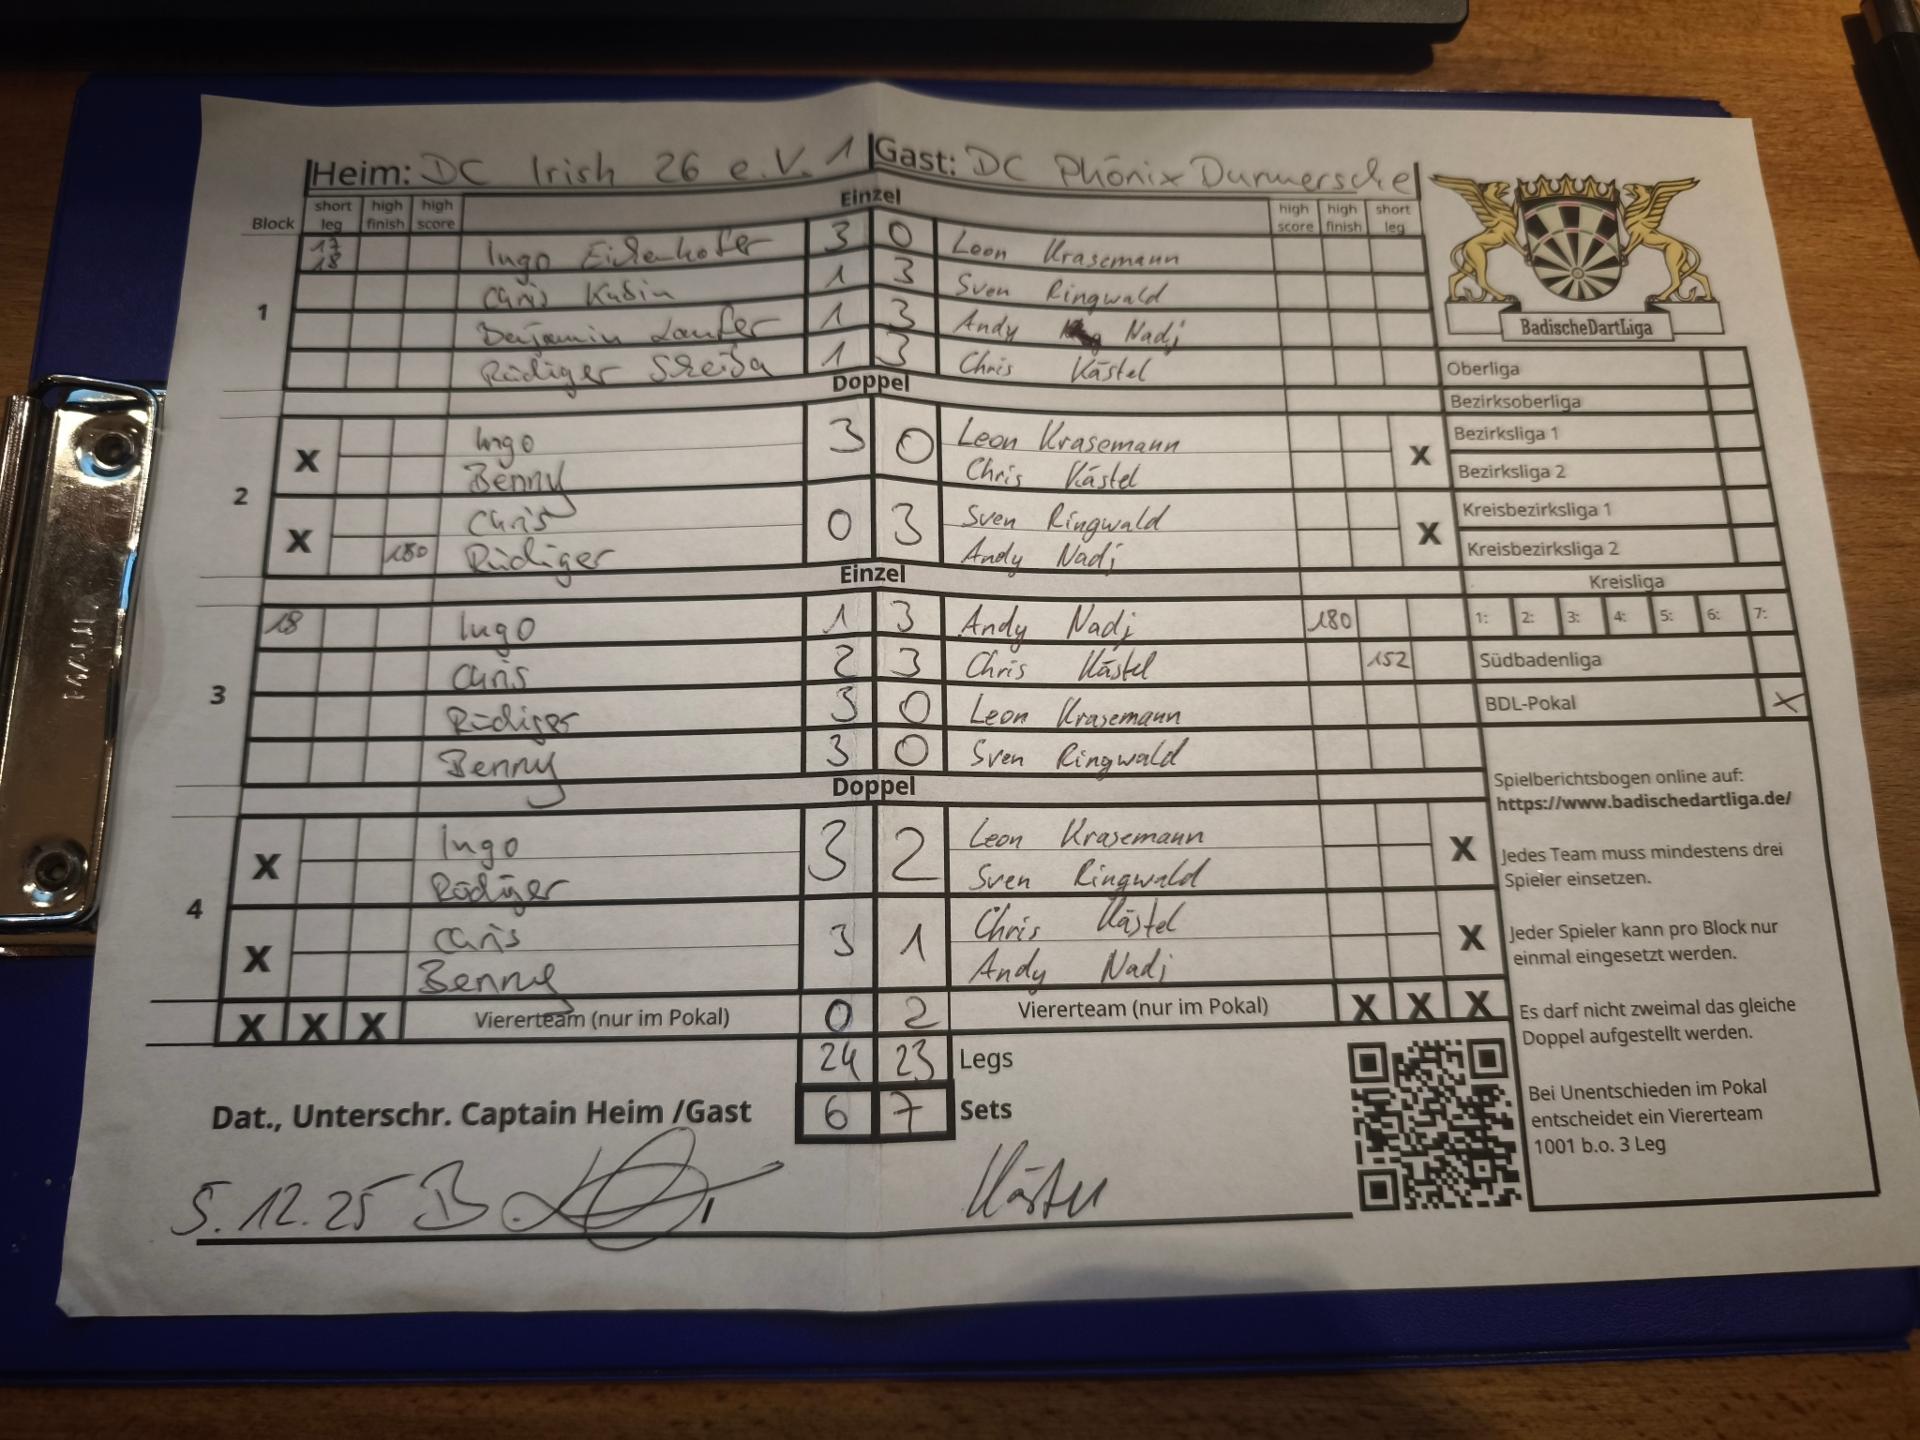 Heim: DC Irish 26 e.V. 1 Gast: DC Phönix Durmersche
Einzel
Block short leg high finish high score high score high finish short leg
1
17 18 Ingo Eichenhofer 3 0 Leon Krasemann
Chris Kubin 1 3 Sven Ringwald
Benjamin Laufer 1 3 Andy Nadj
Rüdiger 1 3 Chris Kästel
Doppel
2
X Ingo 3 0 Leon Krasemann X
Benny Chris Kästel
X Chris 0 3 Sven Ringwald X
180 Rüdiger Andy Nadj
Einzel
3
18 Ingo 1 3 Andy Nadj 180
Chris 2 3 Chris Kästel 152
Rüdiger 3 0 Leon Krasemann
Benny 3 0 Sven Ringwald
Doppel
4
X Ingo 3 2 Leon Krasemann X
Rüdiger Sven Ringwald
X Chris 3 1 Chris Kästel X
Benny Andy Nadj
X X X Viererteam (nur im Pokal) 0 2 Viererteam (nur im Pokal) X X X
24 23 Legs
Dat., Unterschr. Captain Heim /Gast 6 7 Sets
5.12.25
BadischeDartLiga
Oberliga
Bezirksoberliga
Bezirksliga 1
Bezirksliga 2
Kreisbezirksliga 1
Kreisbezirksliga 2
Kreisliga
1: 2: 3: 4: 5: 6: 7:
Südbadenliga
BDL-Pokal X
Spielberichtsbogen online auf:
https://www.badischedartliga.de/
Jedes Team muss mindestens drei
Spieler einsetzen.
Jeder Spieler kann pro Block nur
einmal eingesetzt werden.
Es darf nicht zweimal das gleiche
Doppel aufgestellt werden.
Bei Unentschieden im Pokal
entscheidet ein Viererteam
1001 b.o. 3 Leg